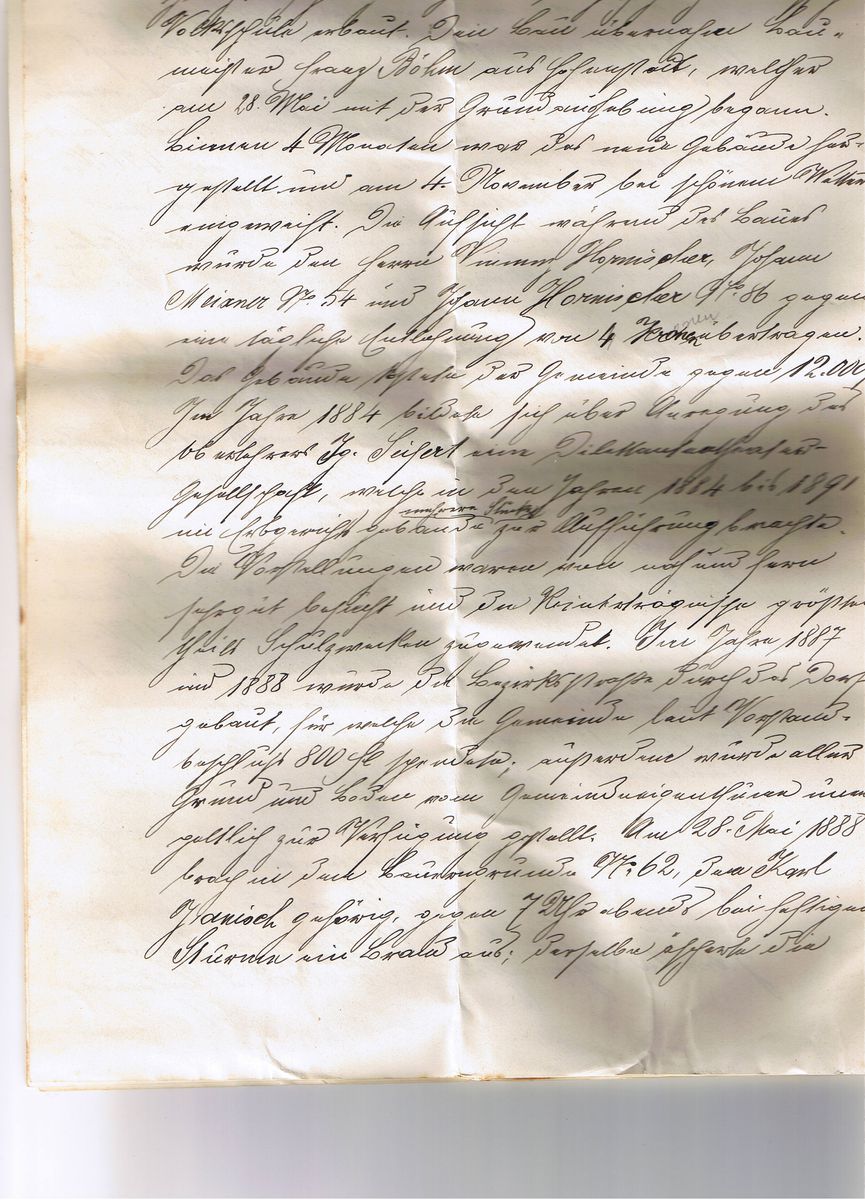 Volksschule erbaut. Den Bau übernahm Bau-
meister Franz Böhm aus Hohenstadt, welcher
am 28. Mai mit der Grundaushebung begann.
Binnen 4 Monaten war das neue Gebäude her-
gestellt und am 4. November bei schönem Wetter
eingeweiht. Die Aufsicht während des Baues
wurde den Herrn Hornischer, Johann
Meixner No. 54 und Johann Hornischer No. 86 gegen
eine tägliche Entlohnung von 4 Kronen übertragen.
Das Gebäude kostete der Gemeinde gegen 12.000
Im Jahre 1884 bildete sich über Anregung des
Oberlehrers Ig. Seifert eine Dilettantentheater-
Gesellschaft, welche in den Jahren 1884 bis 1891
mehrere Stücke
im Erbgerichtgebäude zur Aufführung brachte.
Die Vorstellungen waren von nah und fern
sehr gut besucht und die Reinerträgnisse größten
theils Schulzwecken zugewendet. Im Jahre 1887
und 1888 wurde die Bezirksstraße durch das Dorf
gebaut, für welche die Gemeinde laut Vorstand-
beschluß 800 fl spendete; außerdem wurde aller
Grund und Boden vom Gemeindeeigenthume unent
geltlich zur Verfügung gestellt. Am 28. Mai 1888
brach in dem Bauerngrunde No. 62, dem Karl
Janisch gehörig, gegen 7 Uhr abends bei heftigen
Sturme ein Brand aus; derselbe äscherte die